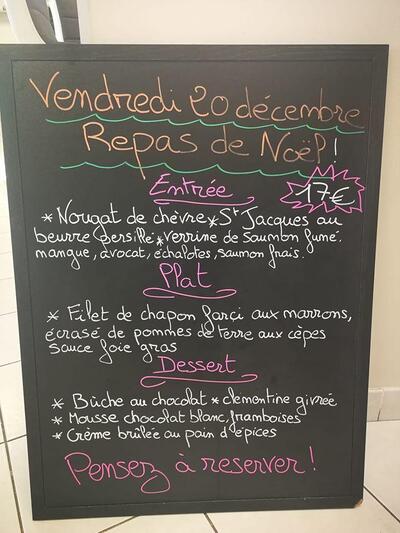 Vendredi 20 décembre
Repas de Noël!
Entrée
17€
* Nougat de chèvre * St Jacques au
beurre persillé * verrine de saumon fumé.
mangue, avocat, échalotes, saumon frais.
Plat
* Filet de chapon farçi aux marrons,
écrasé de pommes de terre aux cèpes
sauce foie gras
Dessert
* Bûche au chocolat * clementine givrée
* Mousse chocolat blanc, framboises
* Crème brûlée au pain d'épices
Pensez à reserver!